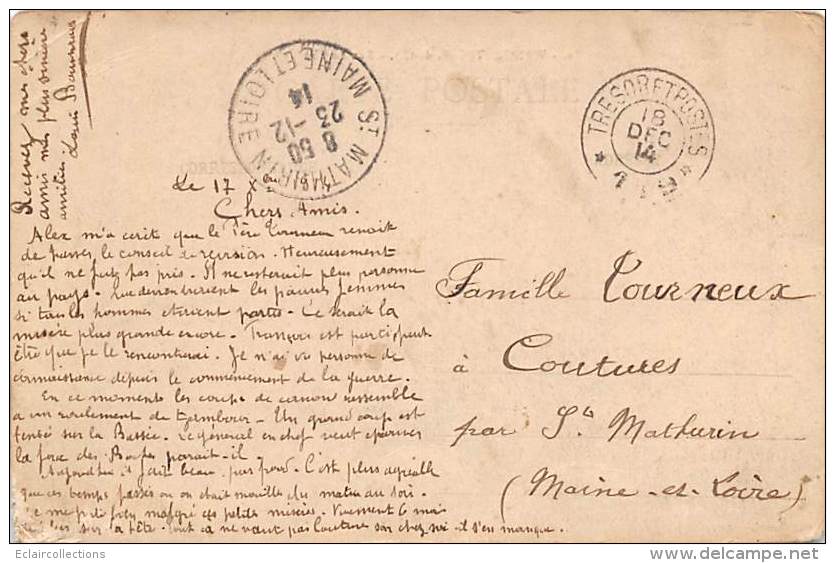 Recevez mes chers
amis mes plus sincères
amitiés
Louis
ST MATHURIN
MAINE ET LOIRE
8 50
23-12
14
TRESOR ET POSTES
18
DEC
14
Le 17 Xbre
Chers Amis.
Alex m'a écrit que le Père Tourneux venait
de passer le conseil de révision. Heureusement
qu'il ne fut pas pris. Il ne resterait plus personne
au pays. Que deviendraient les pauvres femmes
si tous les hommes étaient partis. Ce serait la
misère plus grande encore. François est parti, peut
être que je le rencontrerai. Je n'ai vu personne de
connaissance depuis le commencement de la guerre.
En ce moments les coups de canon ressemble
a un roulement de tambour. Un grand coup est
tenté sur la Bassée. Le général en chef veut éprouver
la force des Boches parait-il.
Aujourdhui il fait beau, pas froid. C'est plus agréable
que ces temps passés ou on était mouillé du matin au soir.
Je me porte bien malgré ces petites misères. Vivement 6 mois
de plus sur la tête. Tout ça ne vaut pas Coutures son chez soi il s'en manque.
Famille Tourneux
à Coutures
par St Mathurin
(Maine-et-Loire)
Eclaircollections
delcampe.net